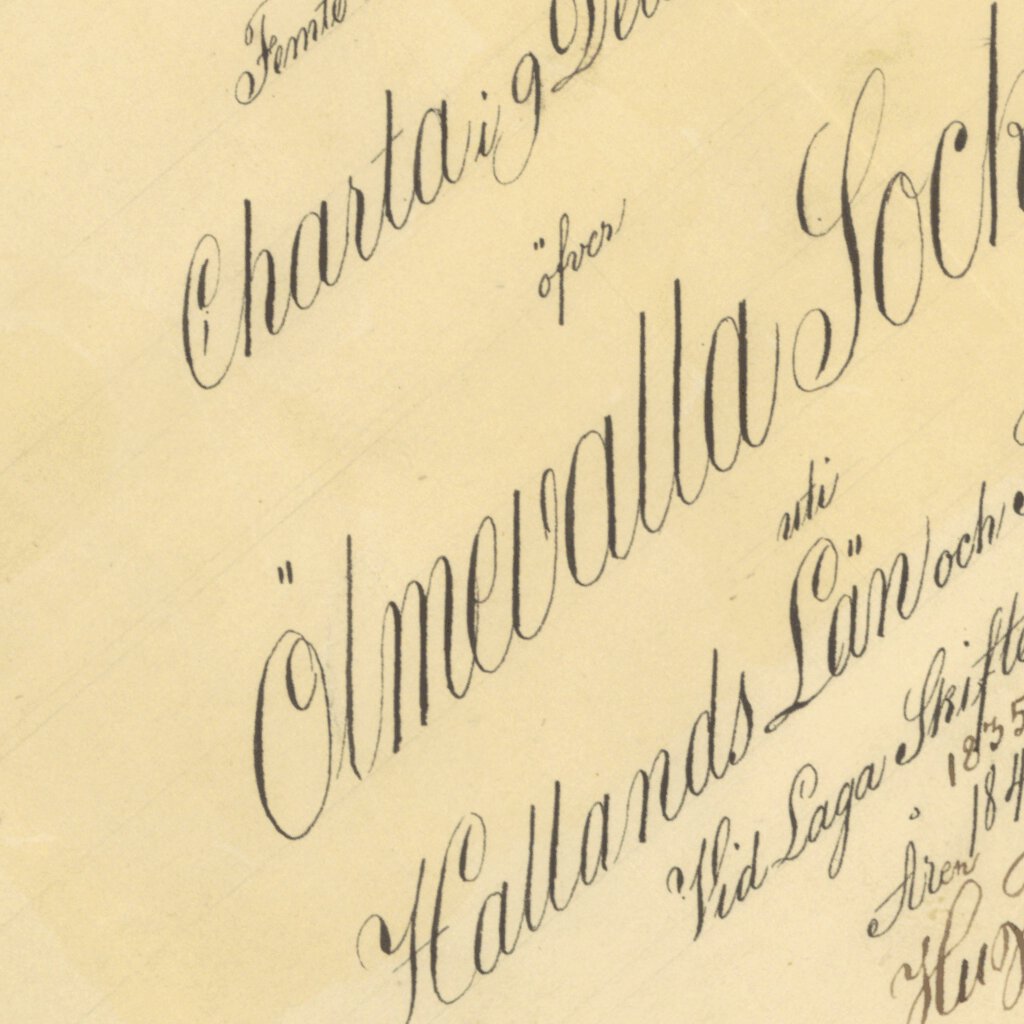 Femte
Charta i 9 Del
öfver
Ölmevalla Sock
uti
Hallands Län och
Vid Laga Skifte
1835
Åren 184
Hug